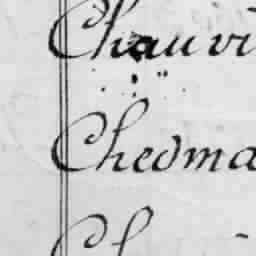 Chauvi
Chedma
Ch